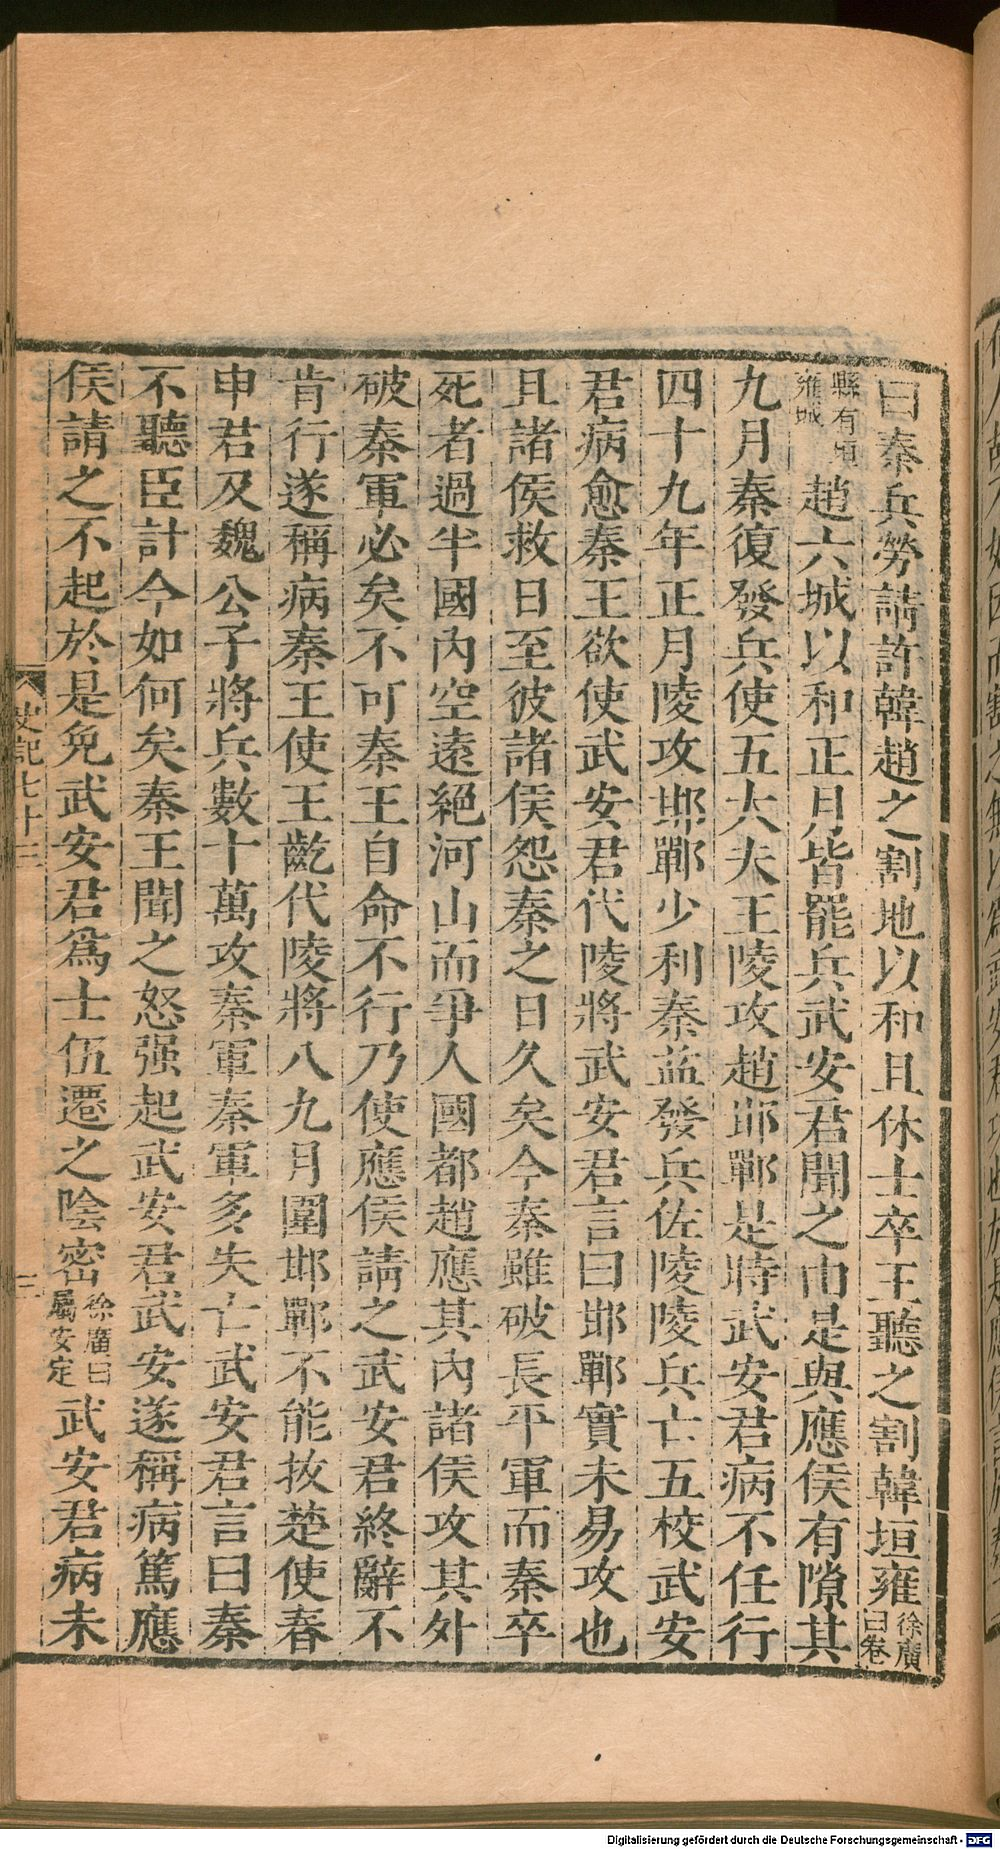 曰秦兵勞請許韓趙之割地以和且休士卒王聽之割韓垣雍徐廣曰卷
縣有垣雍城趙六城以和正月皆罷兵武安君聞之由是與應侯有隙其
九月秦復發兵使五大夫王陵攻趙邯鄲是時武安君病不任行
四十九年正月陵攻邯鄲少利秦益發兵佐陵陵兵亡五校武安
君病愈秦王欲使武安君代陵將武安君言曰邯鄲實未易攻也
且諸侯救日至彼諸侯怨秦之日久矣今秦雖破長平軍而秦卒
死者過半國內空遠絕河山而爭人國都趙應其內諸侯攻其外
破秦軍必矣不可秦王自命不行乃使應侯請之武安君終辭不
肯行遂稱病秦王使王齕代陵將八九月圍邯鄲不能拔楚使春
申君及魏公子將兵數十萬攻秦軍秦軍多失亡武安君言曰秦
不聽臣計今如何矣秦王聞之怒强起武安君武安遂稱病篤應
侯請之不起於是免武安君爲士伍遷之陰密徐廣曰屬安定武安君病未
史記七十三
三
Digitalisierung gefördert durch die Deutsche Forschungsgemeinschaft - DFG